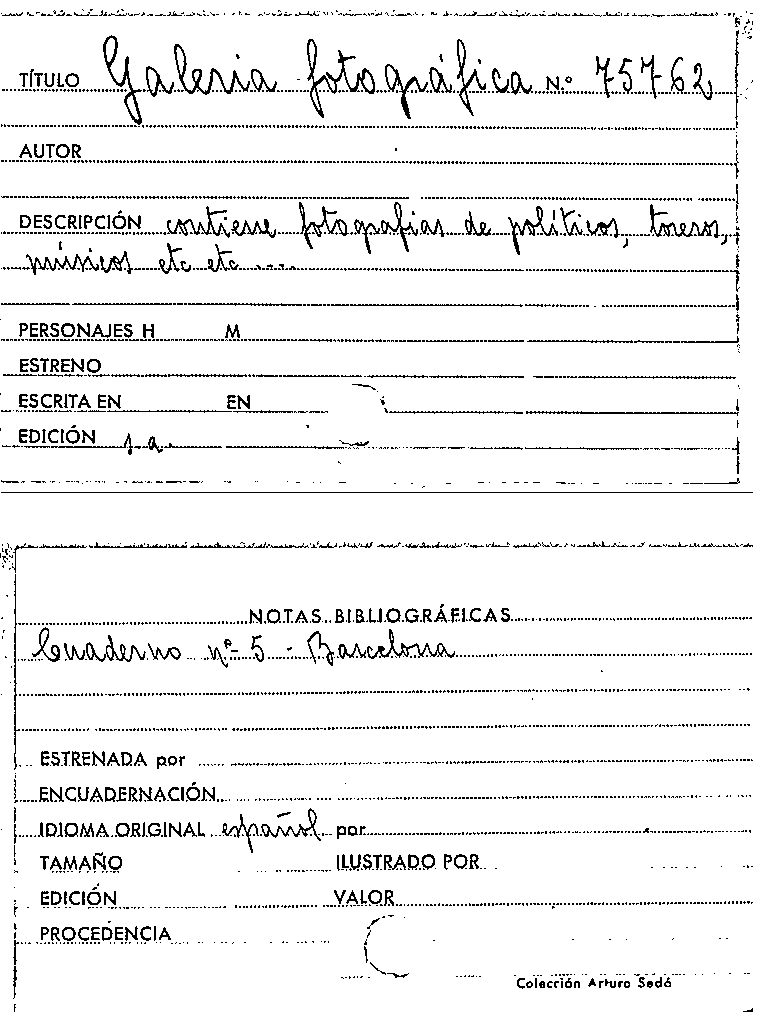 TÍTULO Galeria fotográfica N.º 75762
AUTOR
DESCRIPCIÓN contiene fotografias de políticos, toreros,
músicos etc etc ....
PERSONAJES H M
ESTRENO
ESCRITA EN EN
EDICIÓN s.a.
NOTAS BIBLIOGRÁFICAS
Cuaderno nº 5 - Barcelona
ESTRENADA por
ENCUADERNACIÓN
IDIOMA ORIGINAL español por
TAMAÑO ILUSTRADO POR
EDICIÓN VALOR
PROCEDENCIA
Colección Arturo Sedó